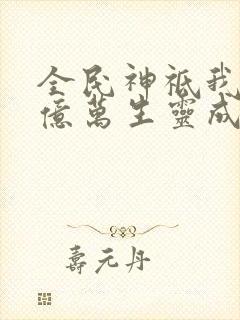 全民神祇我
億萬生靈成
壽元丹